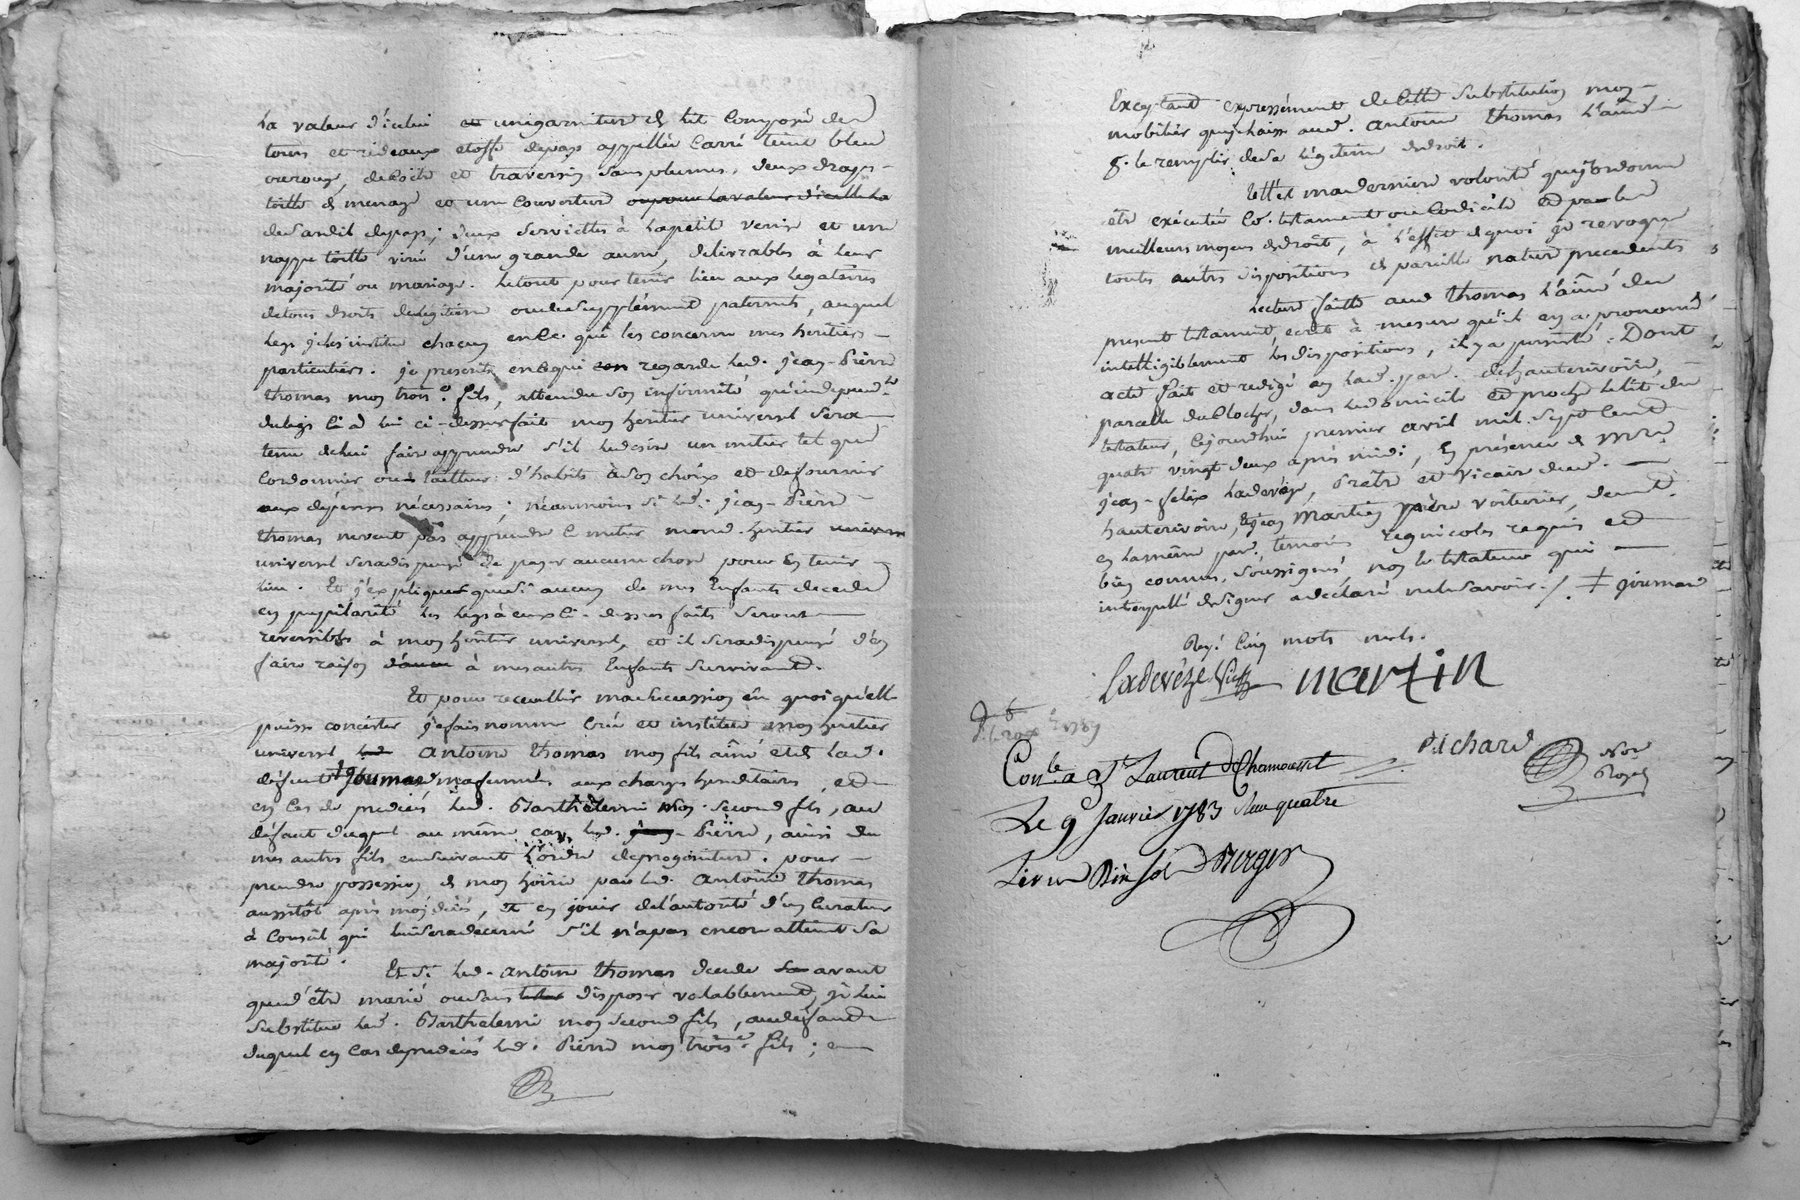 la valeur d'icelui et une garniture de lit composé de
tours et rideaux etoffe du pays appellée Carré teint bleu
ou rouge, de coite et traversin sans plumes, deux draps
toille de menage et une couverture ou pour la valeur d'icelle la
du sardil du pays; deux serviettes à la petite venise et une
nappe toille virée d'une grande aune, delivrables à leur
majorité ou mariage. Le tout pour tenir lieu aux legataires
de tous droits de legitime ou de supplément paternels, auquel
legs je les institue chacun en ce qui les concerne mes heritiers
particuliers. je prescrits en ce qui regarde led. jean-Pierre
thomas mon trois.e fils, attendu son infirmité qu'independ.t
du legs à lui ci-dessus fait mon heritier universel sera
tenu de lui faire apprendre s'il le desire un metier tel que
Cordonnier ou tailleur d'habits à son choix et de fournir
aux dépenses nécessaires; néanmoins si led. jean-Pierre
thomas ne veut pas apprendre le metier mond. heritier univers
universel sera dispensé de payer aucune chose pour en tenir
lieu. Et j'explique que si aucun de mes Enfants decede
en pupilarité les legs à eux ci-dessus faits seront
reversibles à mon heritier universel, et il sera dispensé d'en
faire raison d'aucu à mes autres Enfants survivants.
Et pour recueillir ma succession en quoi qu'elle
puisse concister je fais nomme Crée et institue mon heritier
universel led antoine thomas mon fils aîné et de lad.
défunte Joumard ma femme aux charges hereditaires, et
en cas de predecès led. Barthelemi mon second fils, au
défaut duquel au même cas led. jean-Pierre, ainsi de
mes autres fils en suivant l'ordre de progeniture. pour
prendre possession de mon hoirie par led. antoine thomas
aussitôt après mon décès, et en jouir de l'autorité d'un Curateur
à Conseil qui lui sera decerné s'il n'a pas encore atteint sa
majorité.
Et si led. antoine thomas decede avant
que d'être marié ou sans disposer valablement, je lui
substitue led. Barthelemi mon second fils, au défaut
duquel en cas de predecès led. Pierre mon trois.e fils; en
Exceptant expressément de cette substitution mon
mobilier que je laisse aud. antoine thomas l'aîné
p.r le remplir de sa legitime de droit.
telle est ma derniere volonté que j'ordonne
être exécutée co.e testament ou codicile et par les
meilleurs moyens de droit, à l'effet de quoi je revoque
toutes autres dispositions de pareille nature precedentes
Lecture faitte aud thomas l'aîné du
present testament, ecrit à mesure qu'il en a prononcé
intelligiblement les dispositions, il y a persisté. Dont
acte fait et redigé en lad. par. de hauterivoire,
parcelle du Clocher, dans le domicile et proche le lit du
testateur, cejourd'hui premier avril mil sept cent
quatre vingt deux après midi, En présence de m.re
jean-felix Ladevéze, Prêtre et vicaire dud.
hauterivoire, & jean Martin pere voiturier, demt.
en la même par. temoins regnicoles requis et
bien connus, soussignés, non le testateur qui
interpellé de signer a declaré ne le savoir./. ‡ Joumard
Ray.é Cinq mots nuls.
Ladevéze Vic. martin
Pichard Not.re
Royal
Con.lé a S.t Laurent de Chamousset
Le 9 Janvier 1783